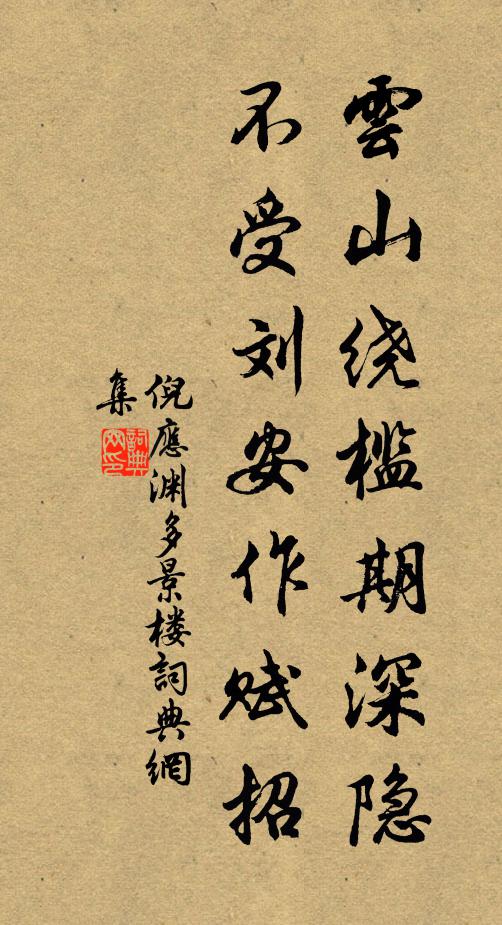 雲山绕槛期深隐
不受刘安作赋招
倪應渊多景楼詞典網
集
詞典网印